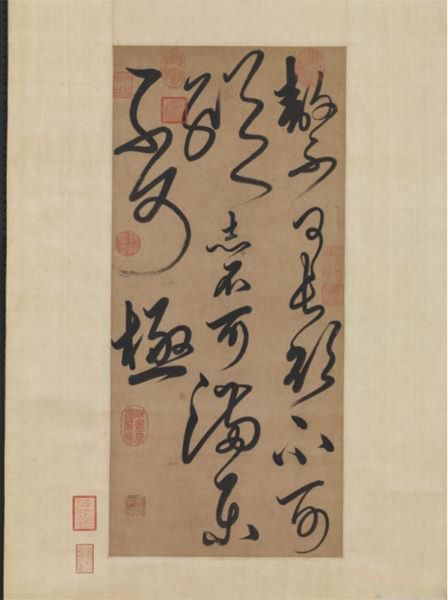 敖不可長欲不可
縱志不可滿樂
不可極